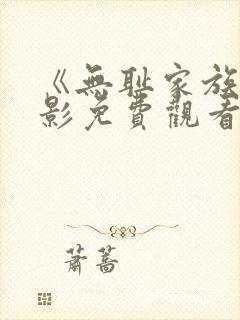 《無耻家族
影免費觀看
蕭蒿